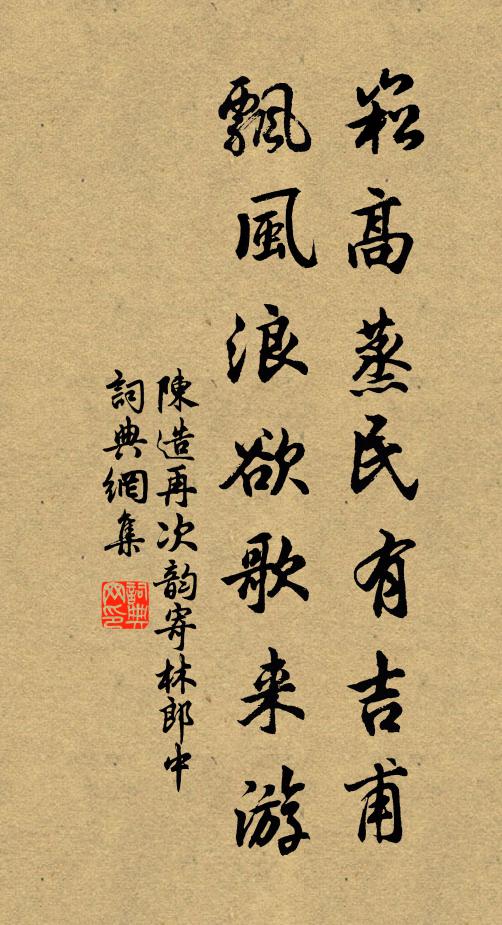 崧高蒸民有吉甫
飄風浪欲歌来游
陳造再次韵寄林郎中
詞典網集
詞典网印